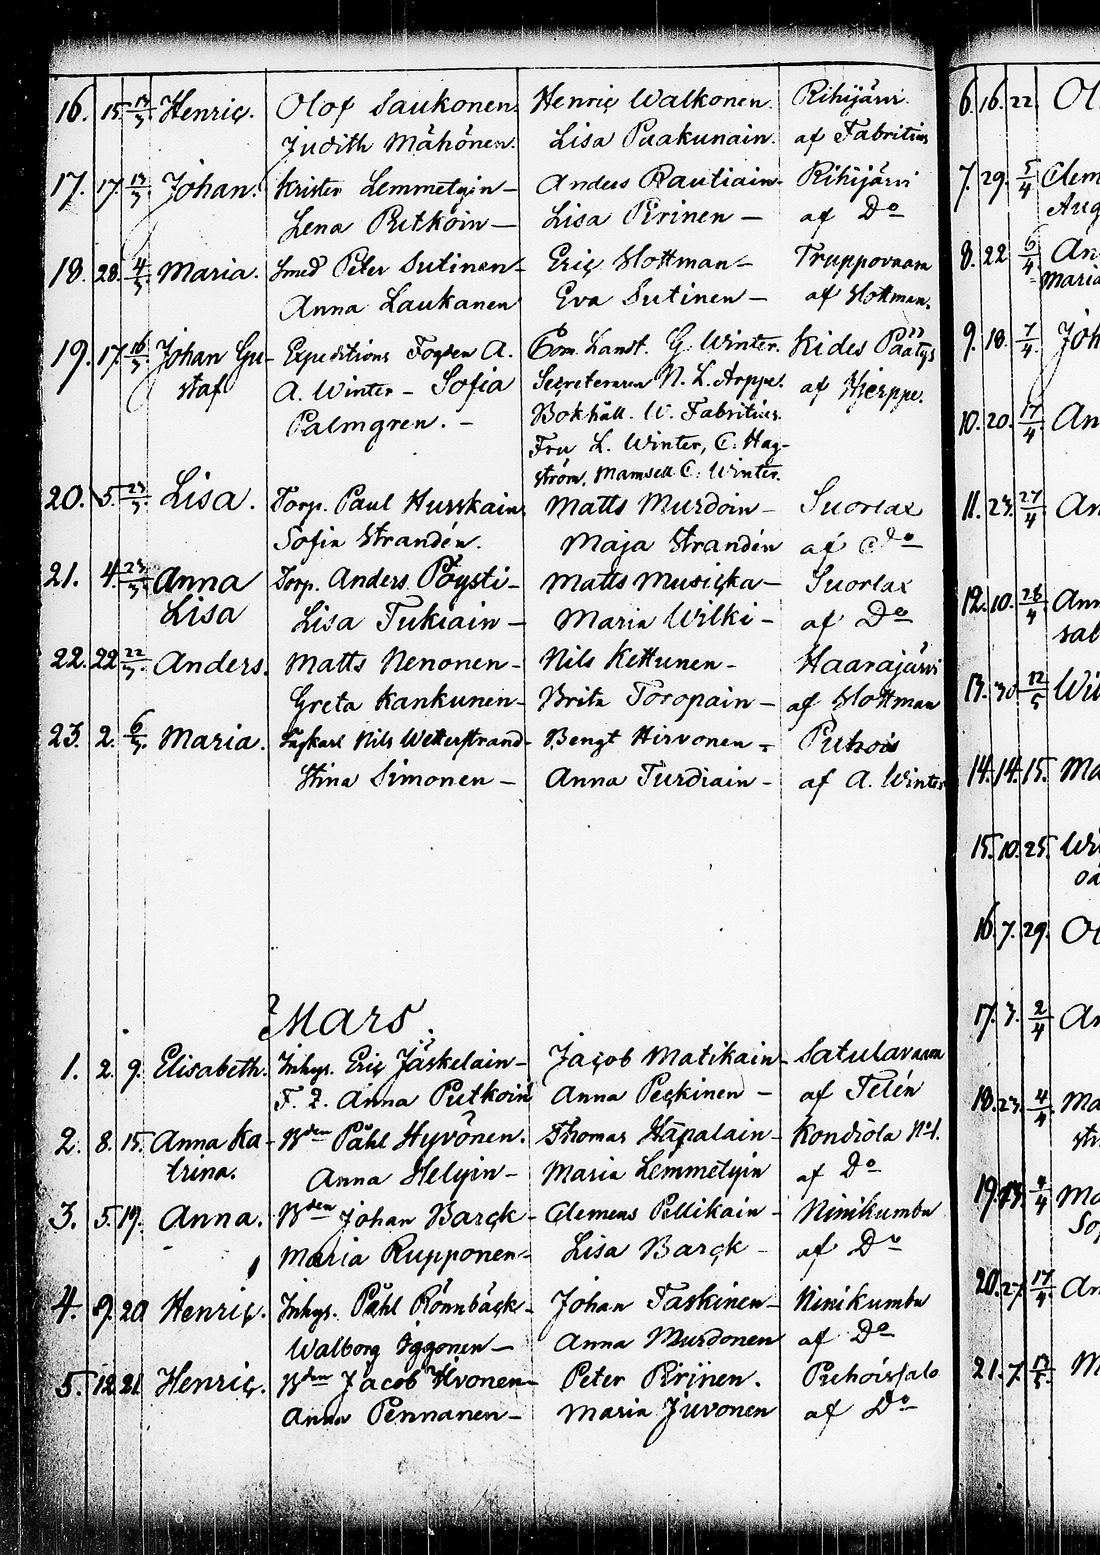 16. 15. 13/3 Henric. Olof Saukonen. Henric Walkonen. Rihijärvi.
Judith Mähönen. Lisa Puakunain. af Fabritius
17. 17. 13/3 Johan. Krister Lemmetyin – Anders Rautiain. Rihijärvi
Lena Putkoin – Lisa Pirinen – af Do
18. 28. 4/3 Maria. Smed Peter Sutinen – Eric Hoffman – Truppovaara
Anna Laukanen Eva Sutinen – af Hoffman.
19. 17. 16/3 Johan Gu- Expeditions Fogden A. Com. Lanst. G Winter. Kides Päätys
staf A. Winter – Sofia Secreteraren N. L. Arppe. af Hjerppe.
Palmgren. – Bokhåll. W. Fabritius.
Fru L. Winter, C. Hag-
ström, Mamsell C. Winter.
20. 5. 23/3 Lisa. Torp. Paul Hurskain. Matts Murdoin – Suorlax
Sofia Strandén. Maja Strandén af Do
21. 4. 23/3 Anna Torp. Anders Pöysti – Matts Musicka – Suorlax
Lisa Lisa Tukiain – Maria Wilki – af Do
22. 22 22/3 Anders. Matts Nenonen – Nils Kettunen – Haarajärvi
Greta Kankunen – Brita Toropain – af Hoffman
23. 2. 6/3 Maria. Nils Wetterstrand – Bengt Hirvonen – Puhois
Stina Simonen – Anna Turdiain – af A. Winter
Mars.
1. 2. 9. Elisabeth. Inhys. Eric Jäskelain – Jacob Matikain – Satulavaara
Anna Putkoin Anna Peckinen – af Telén
2. 8. 15. Anna Ka- Bden Påhl Hyvönen. Thomas Häpalain – Kondiola No 1.
trina. Anna Helyin – Maria Lemmetyin af Do
3. 5. 19. Anna. Bden Johan Barck – Clemens Pellikain – Ninikumbu
Maria Rupponen – Lisa Barck – af Do
4. 9. 20 Henric. Inhys. Påhl Rönnbäck – Johan Taskinen – Ninikumbu
Walborg Iggonen – Anna Murdonen af Do
5. 12. 21 Henric. Bden Jacob Hvonen – Peter Pirinen. Puhoissalo
Anna Pennanen – Maria Juvonen af Do
6. 16. 22. Ol
7. 29. 5/4 Clem
Aug
8. 22 6/4 An
Maria
9. 18. 7/4 Joh
10. 20. 17/4 An
11. 23. 27/4 An
12. 10. 28/4 Ann
sab
13. 30. 12/5 Wil
14. 14. 15. Ma
15. 10. 25. Wil
16. 7. 29. Ol
17. 3. 2/4 An
18. 23. 4/4 Ma
19. Ma
So
20. 27 17/4 An
21. 7. 13/5 M